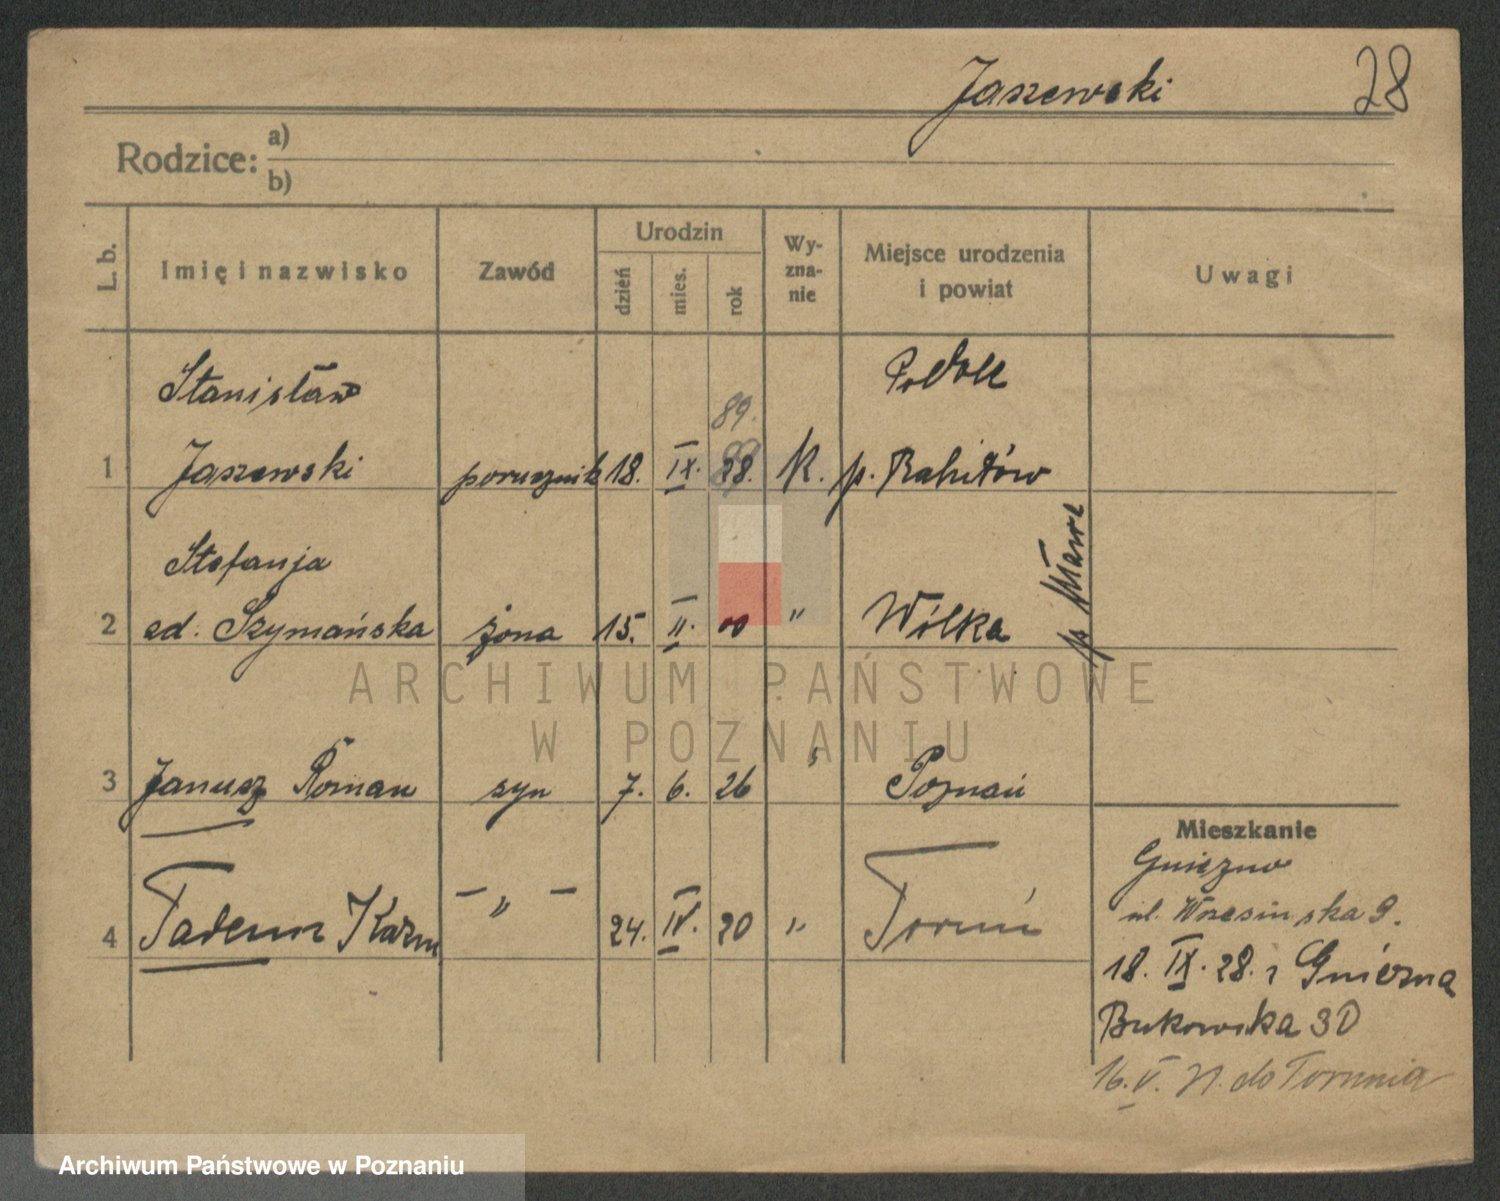 Jaszewski 28
Rodzice: a)
b)
L. b. Imię i nazwisko Zawód Urodzin dzień mies. rok Wy-zna-nie Miejsce urodzenia i powiat Uwagi
Stanisław 89. Podole
1 Jaszewski porucznik 18. IX. 28. K. p.
Stefanja
2 Szymańska żona 15. II. 00 " Wólka p. Mława
3 Janusz Roman syn 7. 6. 26 Poznań
Mieszkanie
4 – " – 24. IV. 20 " Toruń
Gniezno
ul. Wrzesińska 9.
18. IX. 28. z Gniezna
Bukowska 30
16. V. do Torunia
ARCHIWUM PAŃSTWOWE
W POZNANIU
Archiwum Państwowe w Poznaniu